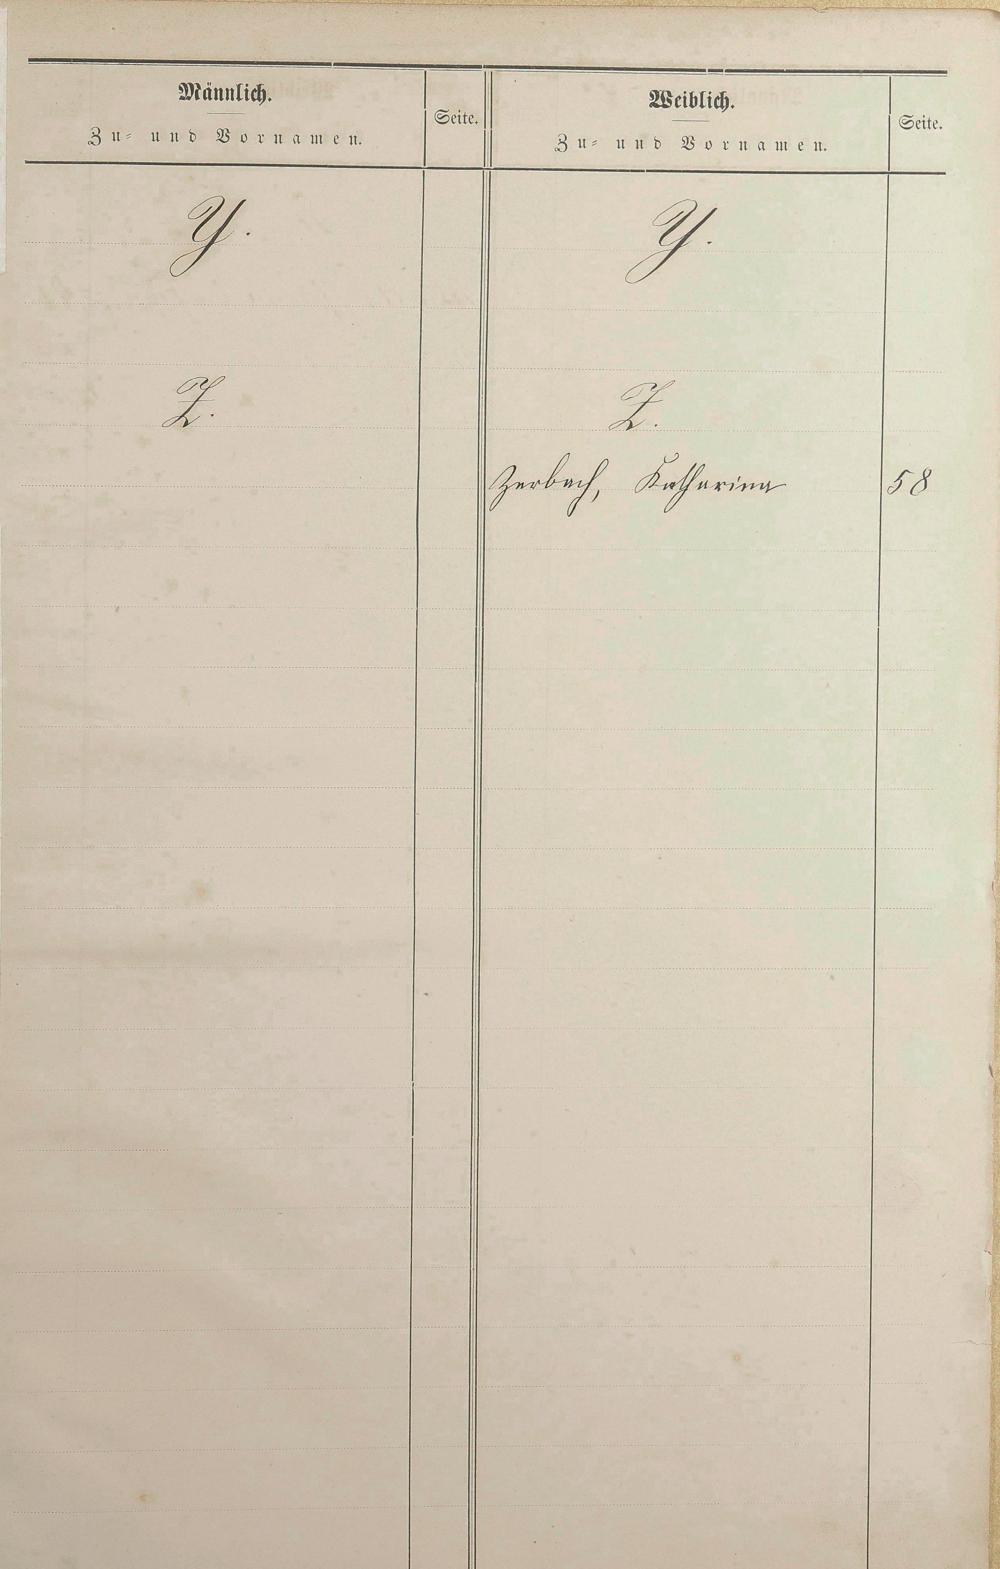 Männlich.
Zu- und Vornamen.
Seite.
Weiblich.
Zu- und Vornamen.
Seite.
Y.
Y.
Z.
Z.
Zerbach, Katharina 58